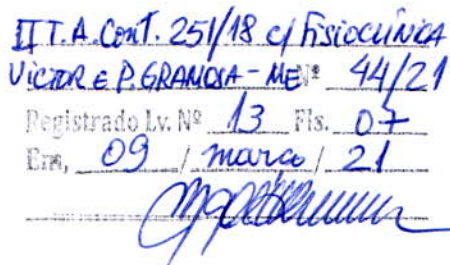 III T.A. Cont. 251/18 c/ Fisioclínica
Victor e P. GRANOSA - ME Nº 44/21
Registrado Lv. Nº 13 Fls. 07
Em, 09 / março / 21